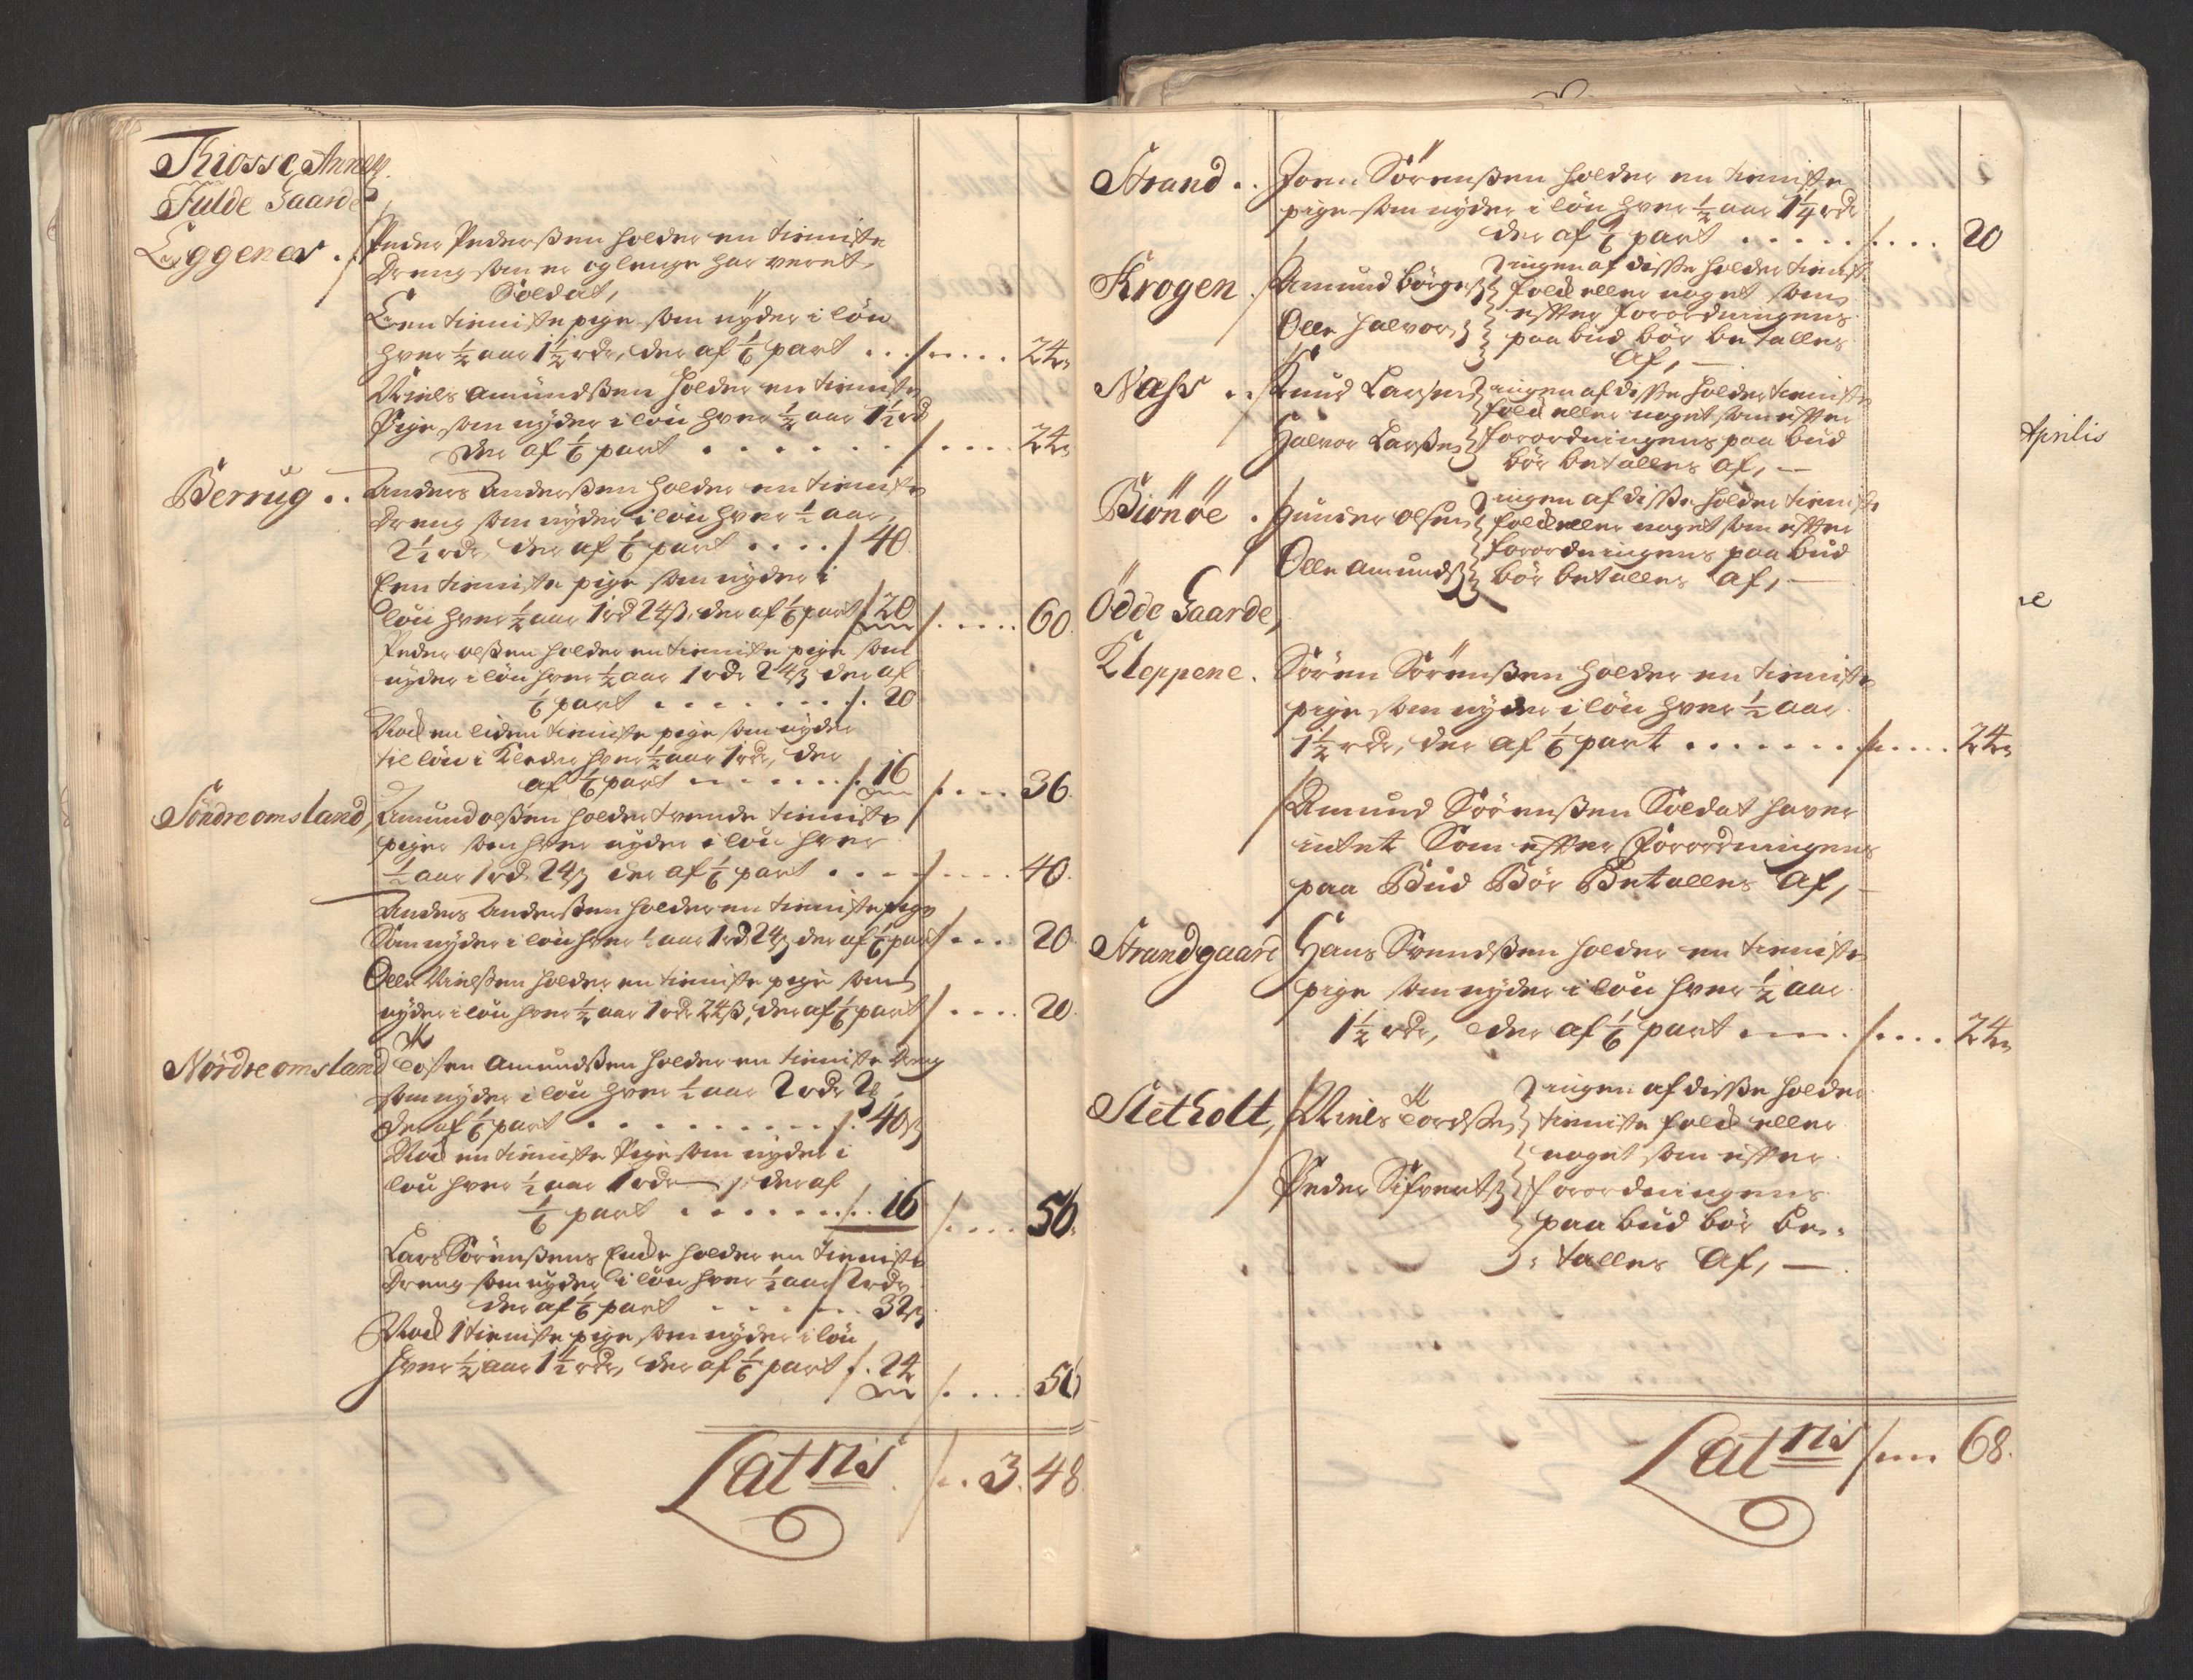 Kiosse Annex
Fulde Gaarde,
Eggenes . Peder Pederßen holder en tieniste
Dreng som er og lenge har veret
Soldat,
Een tieniste pige som nÿder i lön
hver ½ aar 1½ rdr, der af ⅙ part . . . . . . . 24
Niels Amundßen holder en tieniste
Pige som nÿder i lön hver ½ aar 1½ rd
der af ⅙ part . . . . . . . . . . 24
Berrug . . Anders Anderßen holder en tieniste
Dreng som nÿder i lön hver ½ aar,
2½ rdr, der af ⅙ part . . . . 40
Een tieniste pige som nÿder i
lön hver ½ aar 1 rd 24 ß, der af ⅙ part 20 . . . . . 60
Peder olßen holder en tieniste pige som
nÿder i lön hver ½ aar 1 rdr 24 ß der af
⅙ part . . . . . . . . 20
Nock en liden tieniste pige som nÿder
til lön i Kleder hver ½ aar 1 rdr, der
af ⅙ part . . . . . . 16 . . . . 36.
Söndre omsland, Amund olßen holder trende tieniste
piger som hver nÿder i lön hver
½ aar 1 rd 24 ß der af ⅙ part . . . . . . . 40.
Anders Anderßen holder en tieniste pige
Som nÿder i lön hver ½ aar 1 rd 24 ß der af ⅙ part . . . 20
Olle Nielßen holder en tieniste pige som
nÿder i lön hver ½ aar 1 rdr 24 ß, der af ⅙ part . . . . 20
Nordre omsland Tosten Amundßen holder en tieniste Dreng
som nÿder i lön hver ½ aar 2 rdr 2
der af ⅙ part . . . . . . . . . 40 ß
Nock en tieniste Pige som nÿder i
lön hver ½ aar 1 rdr, der af
⅙ part . . . . . . . . 16 . . . . 56.
Lars Sörenßens Encke holder en tieniste
Dreng som nÿder i lön hver ½ aar 2 rdr,
der af ⅙ part . . . . . . 32 ß
Nock 1 tieniste pige som nÿder i lön
hver ½ aar 1½ rdr, der af ⅙ part . 24 . . . . 56
Latris . . 3. 48.
Strand . . Joen Sörenßen holder en tieniste
pige som nÿder i lön hver ½ aar 1¼ rdr
der af ⅙ part . . . . . . . . . 20
Krogen . Amund börgeß ingen af diße holder tieniste
folck eller noget som
Olle Halvorß effter forordningens
paa bud bör betalles
Af, —
Næss . . Knud Larsen ingen af diße holder tieniste
folck eller noget som effter
Halvor Larßen forordningens paa bud
bör betalles af, —
Biönöe . Gunder olsen ingen af diße holder tieniste
folck eller noget som effter
forordningens paa bud
Olle Amundß bör betalles af, —
Ödde Gaarde,
Kleppene . Sören Sörenßen holder en tieniste
pige som nÿder i lön hver ½ aar
1½ rdr, der af ⅙ part . . . . . . . . . . . 24
Amund Sörenßen Soldat haver
intet Som effter Forordningens
paa Bud Bör Betalles Af, —
Strandgaard Hans Svendßen holder en tieniste
pige som nÿder i lön hver ½ aar
1½ rdr, der af ⅙ part . . . . . . . . 24
Sletholt, Niels Tordße ingen af diße holder
tieniste folck eller
noget som effter
Peder Sifvertß forordningens
paa bud bör be-
talles Af, —
Latris 68.
Aprilis